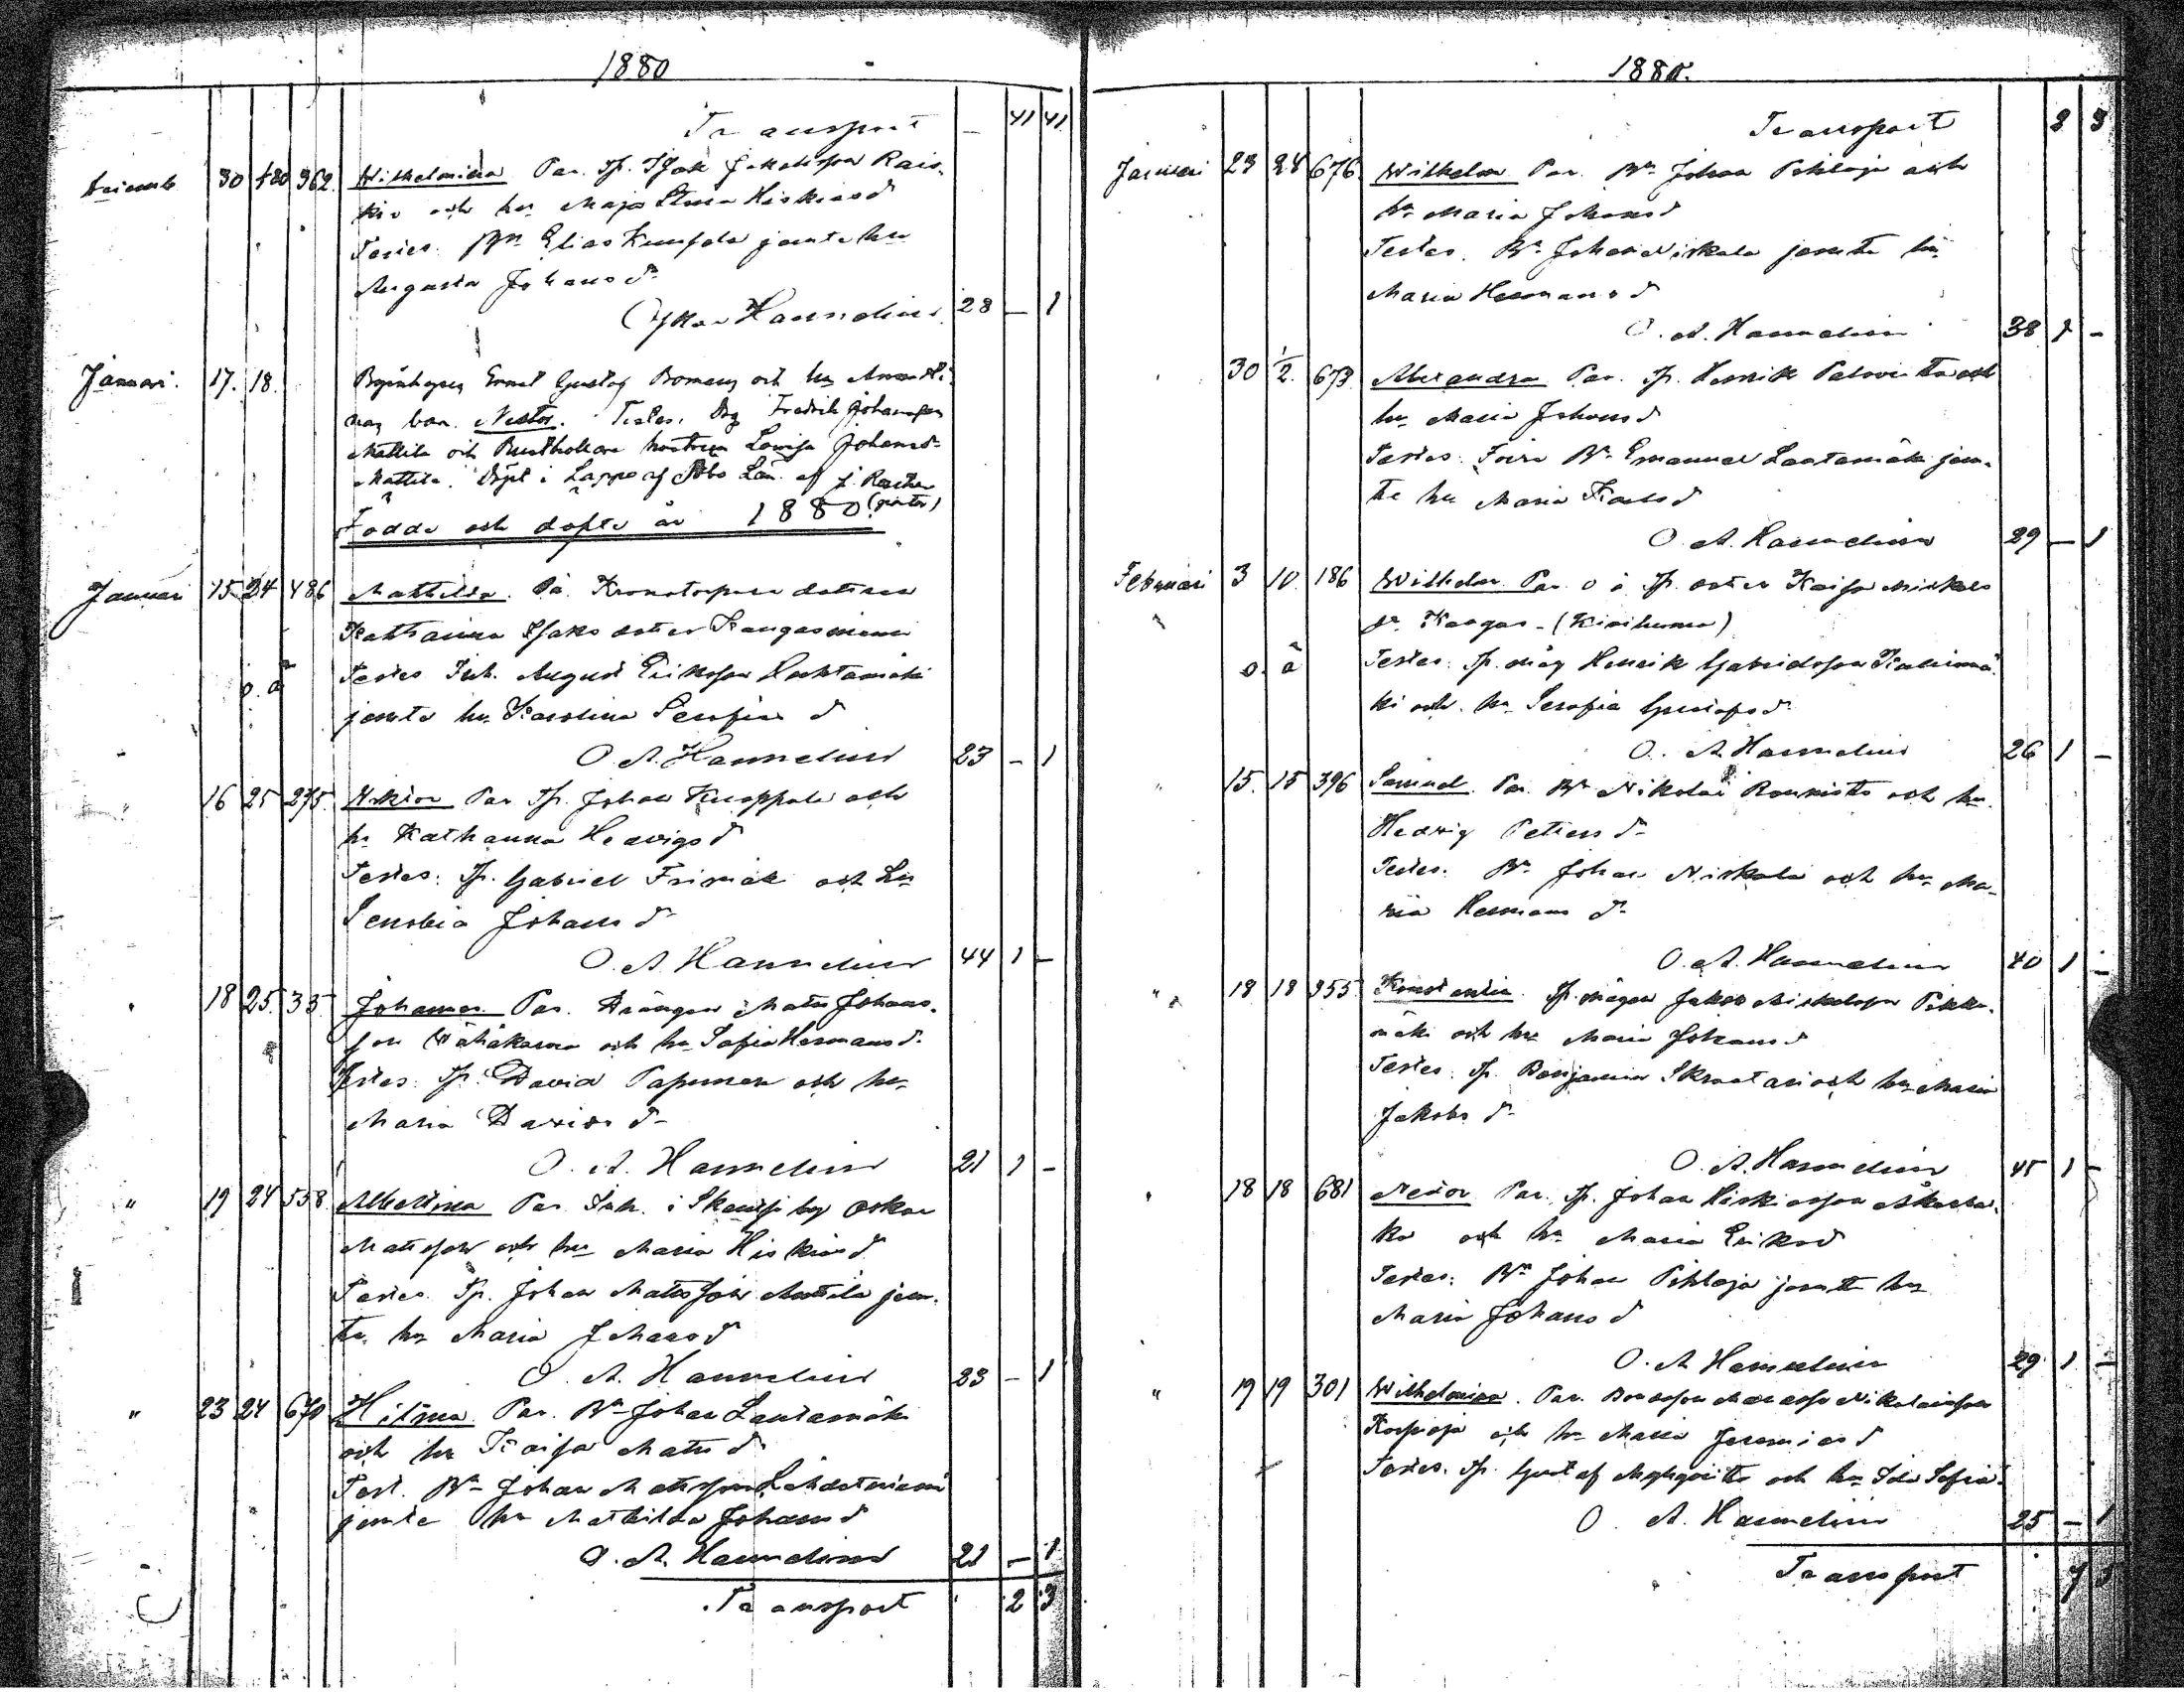 1880
Transport — 41 41
30 962 Wilhelmina Par. Tp. Isak Rais-
kio och hu Maja Stina Hiskiasd
Testes. Bn Elias jemte hu
Augusta Johansd
Oskar Hannelius 28 — 1
Januari. 17. 18. Ernst Gustaf Boman och hu Amanda
barn Nestor. Testes. Drg Fredrik Johansson
Mattila och Rusthollare hustrun Lovisa Johansd
Mattila. Döpt i Lappo af Åbo Län af
Födde och döpte år 1880
Januari 15 24 486 Mathilda. Pa. Kronotorpare dotren
Katharina Isaks dotter Kangasniemi
o. ä Testes Inh. August Eriksson Lahtamäki
jemte hu Karolina Serafia d
O. A. Hannelius 23 — 1
" 16 25 275. Par Tp. Johan Knuppala och
hu Katharina Hedvigsd
Testes: Tp. Gabriel och hu
Senobia Johansd
O. A. Hannelius 44 1 —
" 18 25. 33 Johannes Par. Drängen Mats Johans-
son och hu Sofia Hermansd.
Testes: Tp. David Papunen och hu
Maria Davidsd
O. A. Hannelius 21 1 —
" 19 24 558. Albertina Par. Inh. i by Oskar
Matsson och hu Maria Hiskiasd
Testes. Tp. Johan Matsson Mattila jem-
te hu Maria Johansd
O. A. Hannelius 23 — 1
" 23 24 670 Hilma. Par. Bn Johan Lautamäki
och hu Kaisa Matsd
Test. Bn Johan Matsson Lähdeniemi
jemte hu Mathilda Johansd
O. A. Hannelius 21 — 1
Transport 2 3
1880.
Transport 2 3
Januari 23 24 676. Wilhelm Par. Bn Johan Pihlaja och
hu Maria Johansd
Testes. Bn Johan Niskala jemte hu
Maria Hermansd
O. A. Hannelius 38 1 —
" 30 1/2. 673. Alexandra Par. Tp. Henrik Palovirta och
hu Maria Johansd
Testes: Bn Emanuel Lautamäki jem-
te hu Maria Karlsd
O. A. Hannelius 29 — 1
Februari 3 10. 186 Wilhelm. Par. o ä Tp. dotter Kaisa Mickels
dr. Kangas - (Kivihuma)
o. ä Testes: Tp. måg Henrik Gabrielsson
ki och hu Serafia Gustafsd
O. A. Hannelius 26 1 —
" 15. 15 396 Samuel. Par. Bn Nikolai Rannisto och hu
Hedvig Petersd
Testes. Bn Johan Niskala och hu Ma-
ria Hermansd
O. A. Hannelius 40 1 —
" 18 18 355. Konstantin. Tp. mågen Jakob Mickelsson
mäki och hu Maria Johansd
Testes. Tp. Benjamin Skraatari och hu Maria
Jakobsd
O. A. Hannelius 45 1 —
" 18 18 681 Nestor Par. Tp. Johan Hiskiasson
ko och hu Maria Eriksd
Testes: Bn Johan Pihlaja jemte hu
Maria Johansd
O. A. Hannelius 29 1 —
" 19 19 301 Wilhelmina. Par. Bondeson Manasse Nikolaisson
Korpioja och hu Maria Jeremiasd
Testes. Tp. Gustaf och hu Ida Sofia
O. A. Hannelius 25 — 1
Transport 7 5